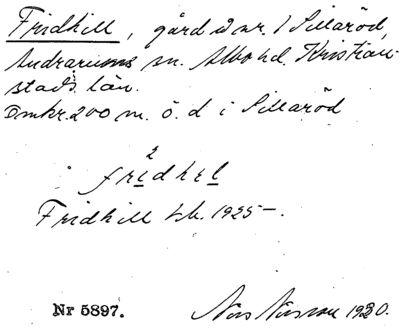 Fridhill, gård å nr. 1 Sillaröd,
Andrarums sn. Albo hd. Kristian-
stads län.
Omkr. 200 m. ö. d i Sillaröd
2
fridhel
Fridhill Lk. 1925–.
Nr 5897. Nils Nilsson 1930.